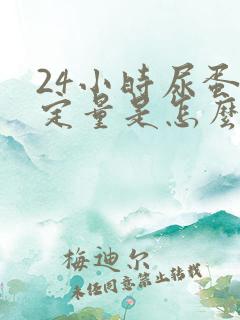 24小时尿蛋
定量是怎么
梅迪尔
未经同意禁止转载